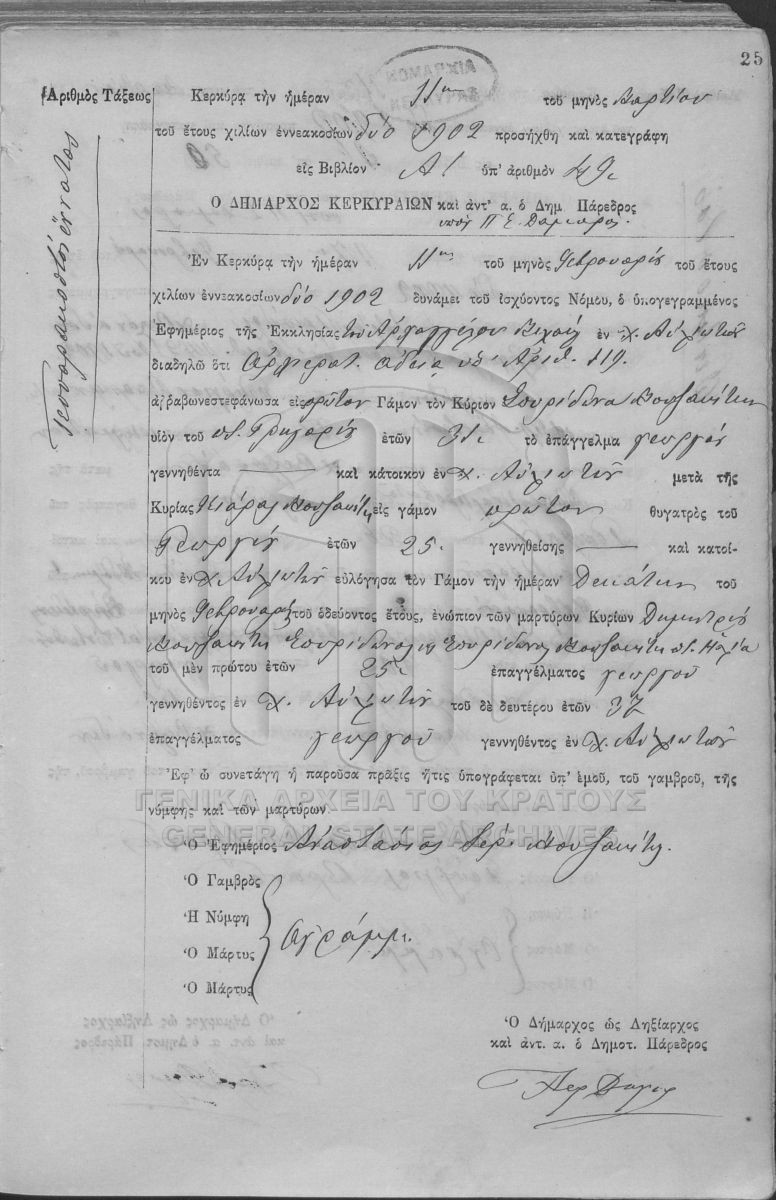 25
ΝΟΜΑΡΧΙΑ
Ἀριθμὸς Τάξεως
τεσσαρακοστὸς ἔννατος
Κερκύρα τὴν ἡμέραν 11ην τοῦ μηνὸς Μαρτίου
τοῦ ἔτους χιλίων ἐννεακοσίων δύο 1902 προσήχθη καὶ κατεγράφη
εἰς Βιβλίον Α! ὑπ' ἀριθμὸν 49.
Ὁ ΔΗΜΑΡΧΟΣ ΚΕΡΚΥΡΑΙΩΝ καὶ ἀντ' α. ὁ Δημ Πάρεδρος
Ἐν Κερκύρα τὴν ἡμέραν 11ην τοῦ μηνὸς Φεβρουαρίου τοῦ ἔτους
χιλίων ἐννεακοσίων δύο 1902 δυνάμει τοῦ ἰσχύοντος Νόμου, ὁ ὑπογεγραμμένος
Ἐφημέριος τῆς Ἐκκλησίας τοῦ Ἀρχαγγέλου Μιχαήλ ἐν χ. Αὐλιωτῶν
διαδηλῶ ὅτι ἀρχιερατ. ἀδεία ὑπ' Ἀριθ. 119.
ἀῤῥαβωνεστεφάνωσα εἰς πρῶτον Γάμον τὸν Κύριον Σπυρίδωνα Μουζακίτην
υἱὸν τοῦ π. Γρηγορίου ἐτῶν 31. τὸ ἐπάγγελμα γεωργόν
γεννηθέντα — καὶ κάτοικον ἐν χ. Αὐλιωτῶν μετὰ τῆς
Κυρίας Κιάρας Μουζακίτη εἰς γάμον πρῶτον θυγατρὸς τοῦ
Γεωργίου ἐτῶν 25. γεννηθείσης — καὶ κατοί-
κου ἐν χ Αὐλιωτῶν εὐλόγησα τὸν Γάμον τὴν ἡμέραν Δεκάτην τοῦ
μηνὸς Φεβρουαρίου τοῦ ὁδεύοντος ἔτους, ἐνώπιον τῶν μαρτύρων Κυρίων Δημητρίου
Μουζακίτη Σπυρίδωνος Σπυρίδωνος Μουζακίτη π. Ηλία
τοῦ μὲν πρώτου ἐτῶν 25. ἐπαγγέλματος γεωργοῦ
γεννηθέντος ἐν χ. Αὐλιωτῶν τοῦ δὲ δευτέρου ἐτῶν 37
ἐπαγγέλματος γεωργοῦ γεννηθέντος ἐν χ. Αὐλιωτῶν
Ἐφ' ᾧ συνετάγη ἡ παροῦσα πρᾶξις ἥτις ὑπογράφεται ὑπ' ἐμοῦ, τοῦ γαμβροῦ, τῆς
νύμφης καὶ τῶν μαρτύρων
ΓΕΝΙΚΑ ΑΡΧΕΙΑ ΤΟΥ ΚΡΑΤΟΥΣ
GENERAL STATE ARCHIVES
Ὁ Ἐφημέριος Ἀναστάσιος Ἱερ. Μουζακίτης.
Ὁ Γαμβρὸς
Ἡ Νύμφη
ἀγράμμ.
Ὁ Μάρτυς
Ὁ Μάρτυς
Ὁ Δήμαρχος ὡς Ληξίαρχος
καὶ ἀντ. α. ὁ Δημοτ. Πάρεδρος